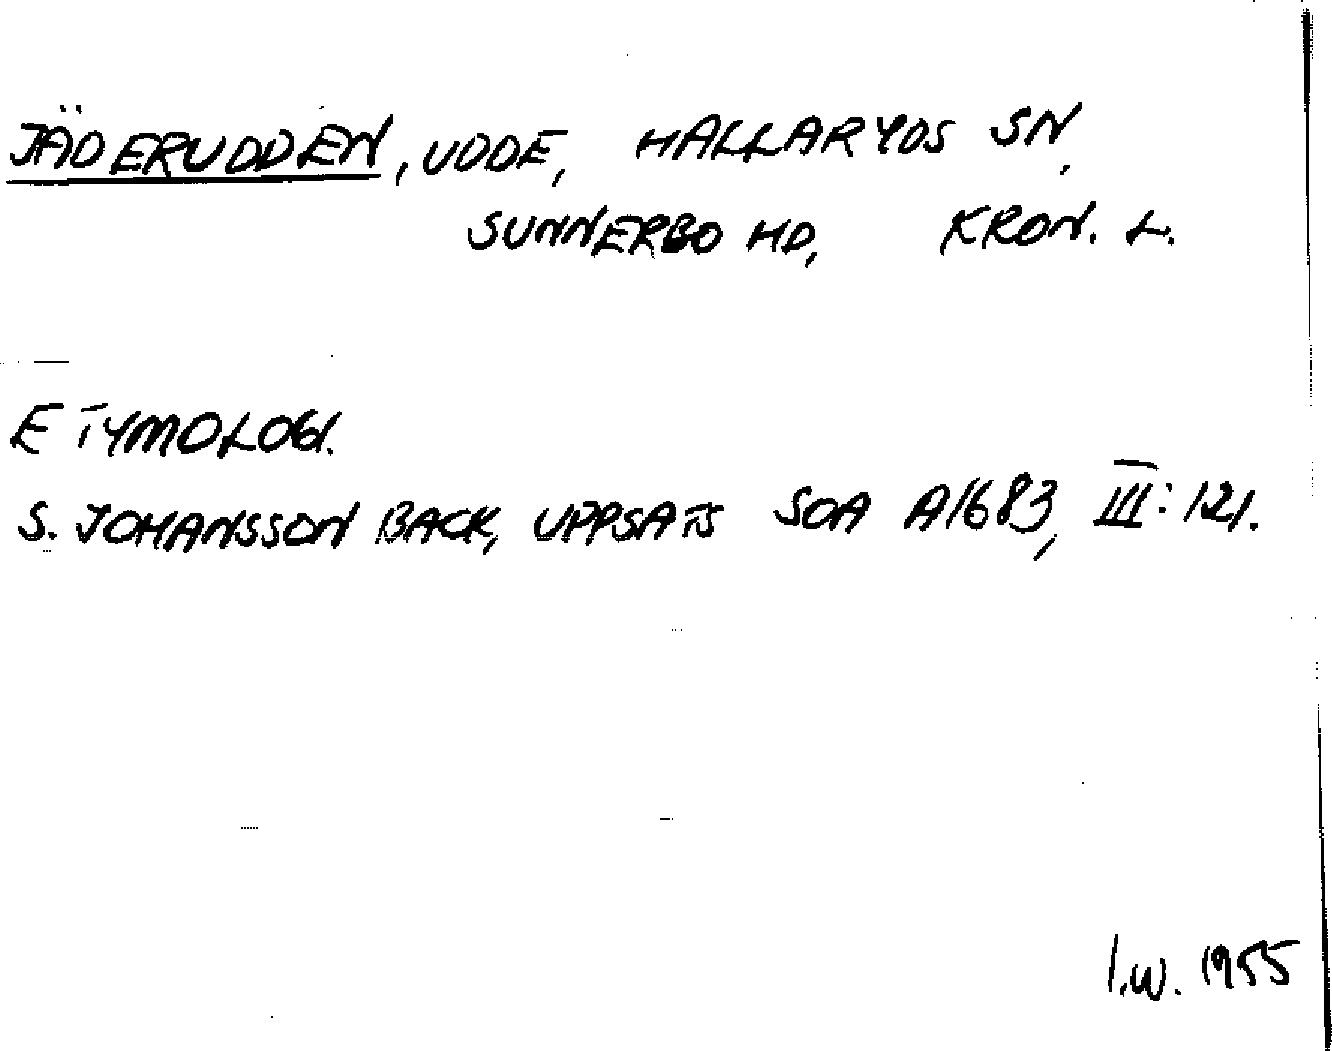 JÄDERUDDEN, UDDE, HALLARYDS SN,
SUNNERBO HD, KRON. L.
ETYMOLOGI.
S. JOHANSSON BACK, UPPSATS SOA A1683, III: 121.
I.W. 1955